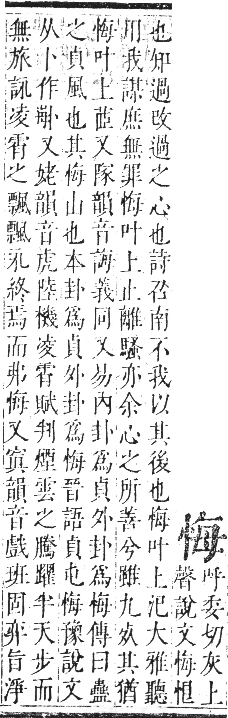 悔
呼委切灰上
聲說文悔恨
也知過改過之心也詩召南不我以其後也悔叶上汜大雅聽
用我謀庶無罪悔叶上止離騷亦余心之所善兮雖九死其猶
悔叶上茝又隊韻音誨義同又易內卦爲貞外卦爲悔傳曰蠱
之貞風也其悔山也本卦爲貞外卦爲悔晉語貞屯悔豫說文
从卜作𠧩又姥韻音虎陸機凌霄賦判煙雲之騰躍半天步而
無旅詠凌霄之飄飄永終焉而弗悔又寘韻音戲班固亦旨淨